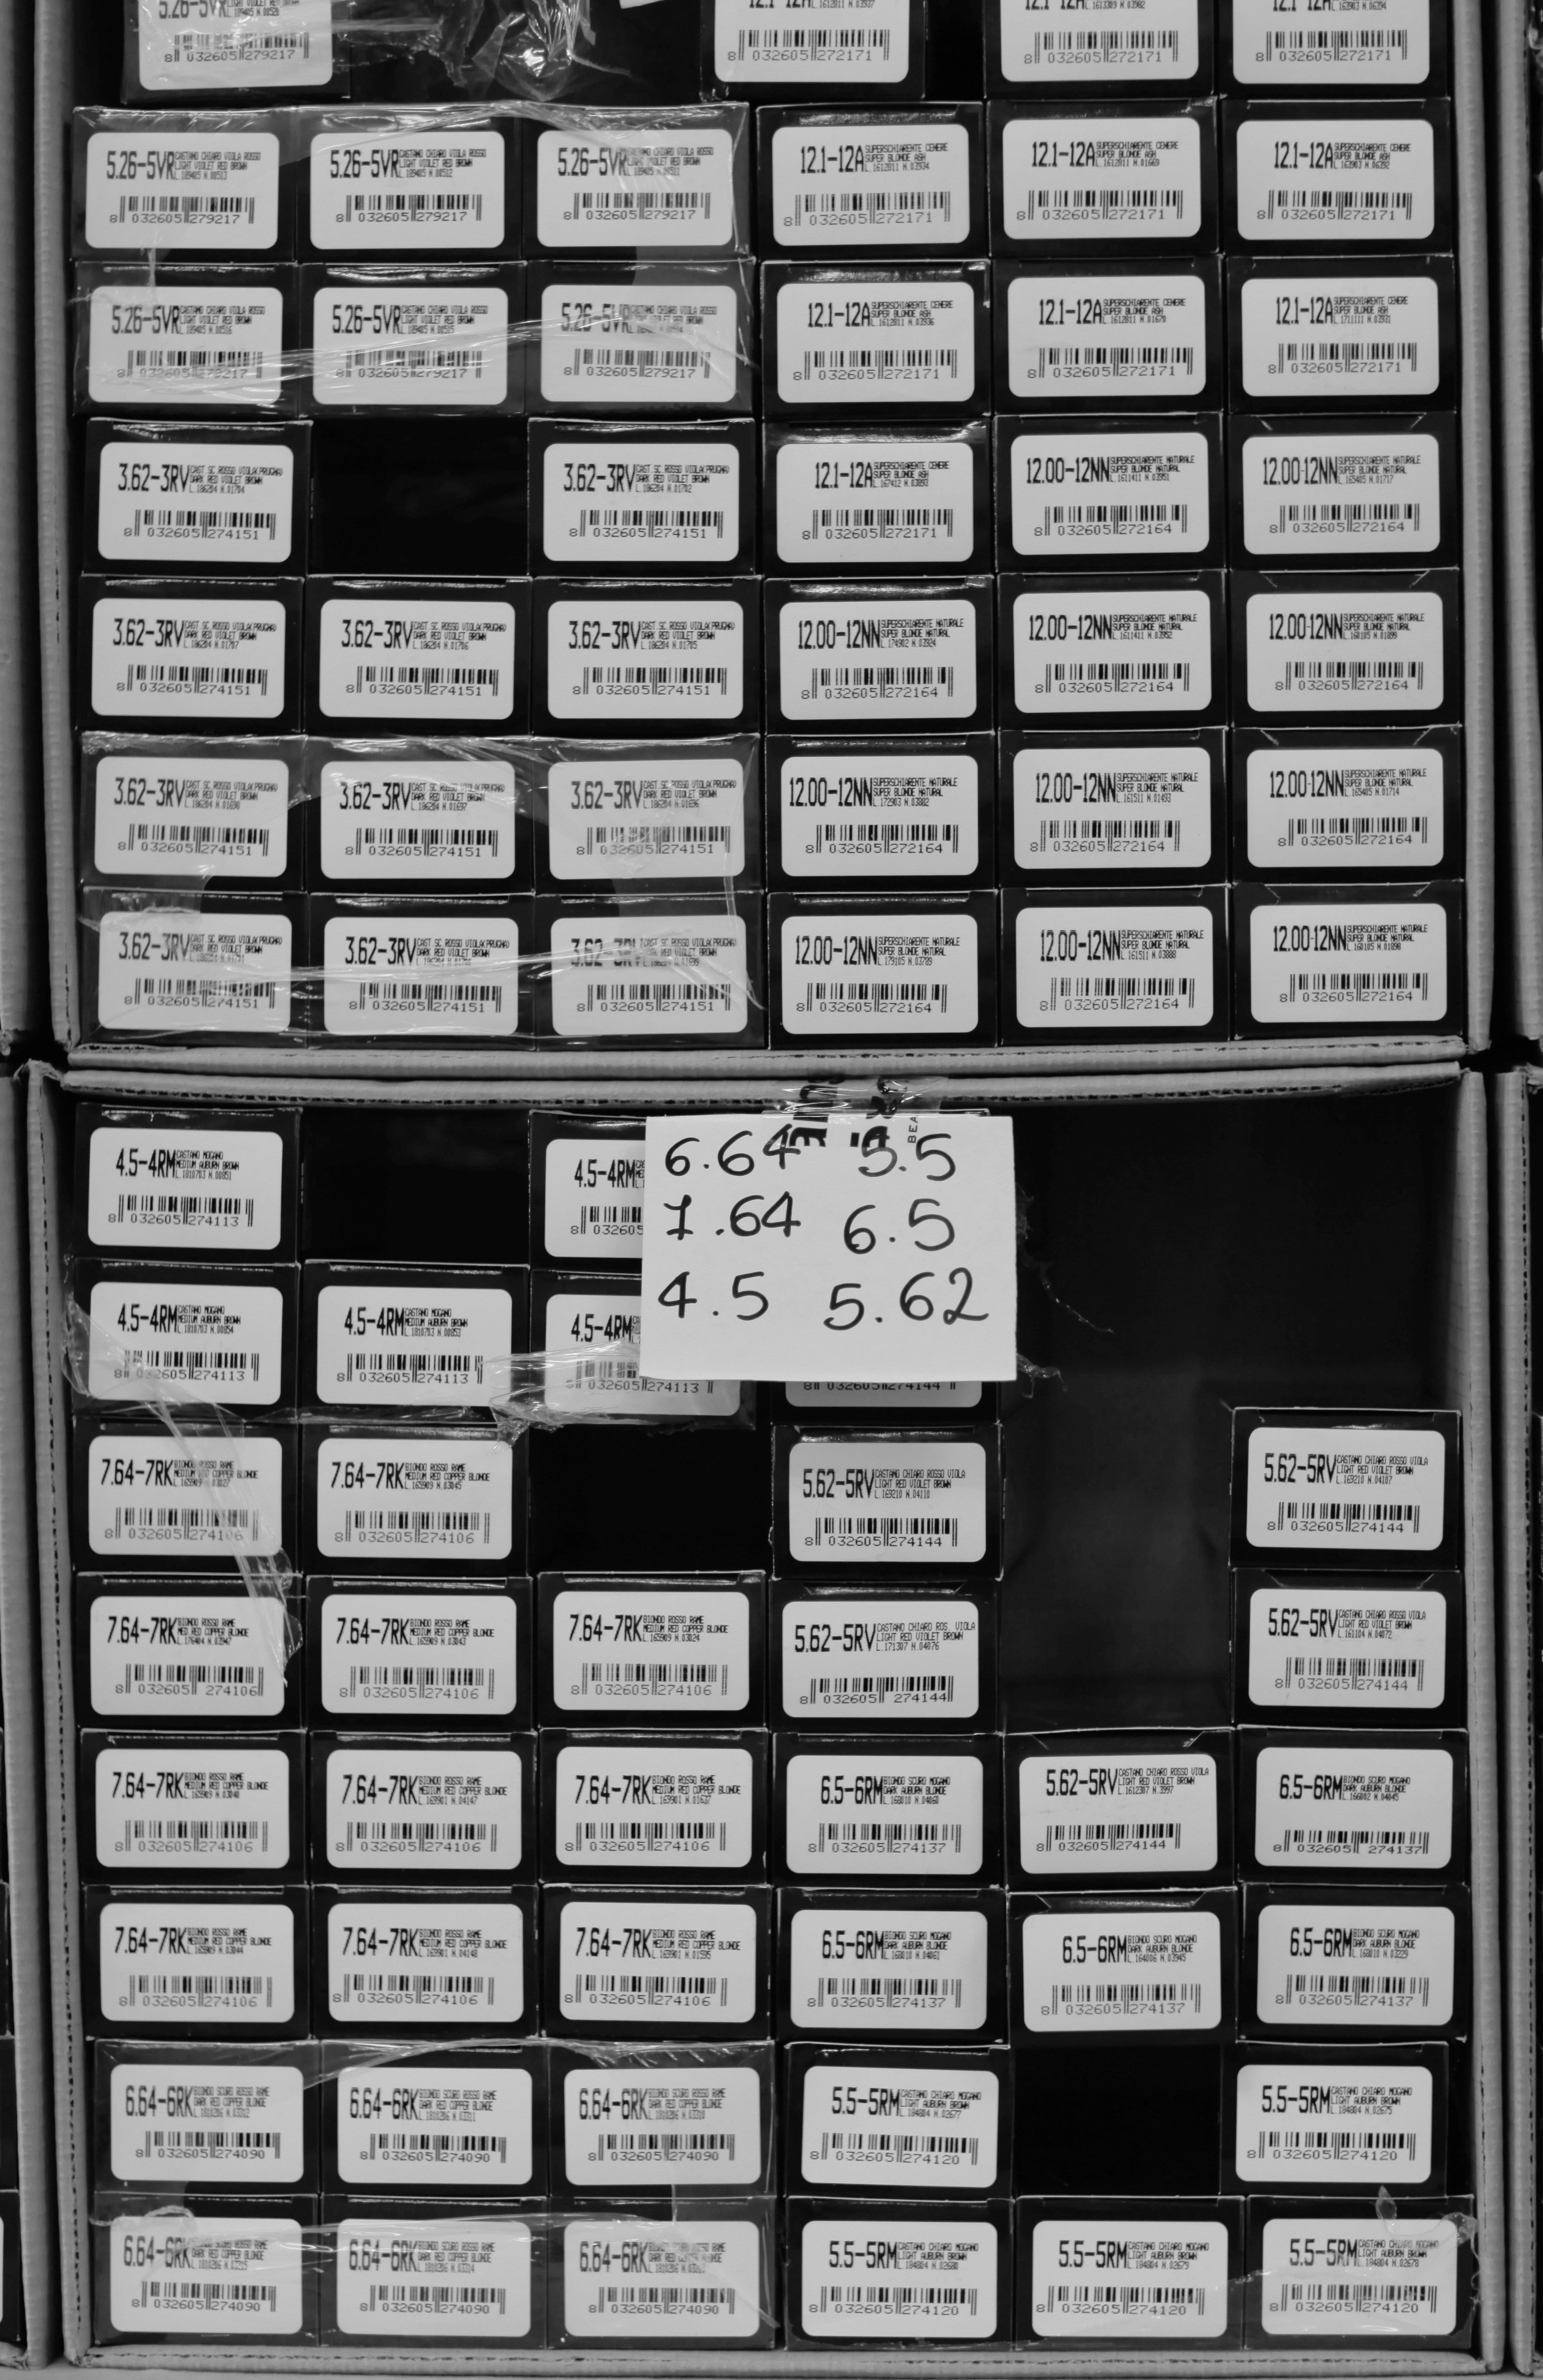 5.26-5VR
8 032605 279217
12.1-12A
L.1612011 N.03937
8 032605 272171
12.1-12A
8 032605 272171
12.1-12A
8 032605 272171
5.26-5VR CASTANO CHIARO VIOLA ROSSO
LIGHT VIOLET RED BROWN
L.189405 N.00513
8 032605 279217
5.26-5VR CASTANO CHIARO VIOLA ROSSO
LIGHT VIOLET RED BROWN
L.189405 N.00512
8 032605 279217
5.26-5VR CASTANO CHIARO VIOLA ROSSO
LIGHT VIOLET RED BROWN
L.189405 N.00511
8 032605 279217
12.1-12A SUPERSCHIARENTE CENERE
SUPER BLONDE ASH
L.1612011 N.03934
8 032605 272171
12.1-12A SUPERSCHIARENTE CENERE
SUPER BLONDE ASH
L.1612011 N.01669
8 032605 272171
12.1-12A SUPERSCHIARENTE CENERE
SUPER BLONDE ASH
8 032605 272171
5.26-5VR CASTANO CHIARO VIOLA ROSSO
LIGHT VIOLET RED BROWN
L.189405 N.00516
8 032605 279217
5.26-5VR CASTANO CHIARO VIOLA ROSSO
LIGHT VIOLET RED BROWN
L.189405 N.00515
8 032605 279217
5.26-5VR CASTANO CHIARO VIOLA ROSSO
8 032605 279217
12.1-12A SUPERSCHIARENTE CENERE
SUPER BLONDE ASH
L.1612011 N.03936
8 032605 272171
12.1-12A SUPERSCHIARENTE CENERE
SUPER BLONDE ASH
L.1612011 N.01670
8 032605 272171
12.1-12A SUPERSCHIARENTE CENERE
SUPER BLONDE ASH
L.1711111 N.03921
8 032605 272171
3.62-3RV CAST SC. ROSSO VIOLA(PRUGNA)
DARK RED VIOLET BROWN
L.186204 N.01704
8 032605 274151
3.62-3RV CAST SC. ROSSO VIOLA(PRUGNA)
DARK RED VIOLET BROWN
L.186204 N.01702
8 032605 274151
12.1-12A SUPERSCHIARENTE CENERE
SUPER BLONDE ASH
L.167412 N.03893
8 032605 272171
12.00-12NN SUPERSCHIARENTE NATURALE
SUPER BLONDE NATURAL
L.1611411 N.03951
8 032605 272164
12.00-12NN SUPERSCHIARENTE NATURALE
SUPER BLONDE NATURAL
L.165405 N.01717
8 032605 272164
3.62-3RV CAST SC. ROSSO VIOLA(PRUGNA)
DARK RED VIOLET BROWN
L.186204 N.01707
8 032605 274151
3.62-3RV CAST SC. ROSSO VIOLA(PRUGNA)
DARK RED VIOLET BROWN
L.186204 N.01706
8 032605 274151
3.62-3RV CAST SC. ROSSO VIOLA(PRUGNA)
DARK RED VIOLET BROWN
L.186204 N.01705
8 032605 274151
12.00-12NN SUPERSCHIARENTE NATURALE
SUPER BLONDE NATURAL
L.174902 N.03924
8 032605 272164
12.00-12NN SUPERSCHIARENTE NATURALE
SUPER BLONDE NATURAL
L.1611411 N.03952
8 032605 272164
12.00-12NN SUPERSCHIARENTE NATURALE
SUPER BLONDE NATURAL
L.160105 N.01899
8 032605 272164
3.62-3RV CAST SC. ROSSO VIOLA(PRUGNA)
DARK RED VIOLET BROWN
L.186204 N.01698
8 032605 274151
3.62-3RV CAST SC. ROSSO VIOLA(PRUGNA)
DARK RED VIOLET BROWN
L.186204 N.01697
8 032605 274151
3.62-3RV CAST SC. ROSSO VIOLA(PRUGNA)
DARK RED VIOLET BROWN
L.186204 N.01696
8 032605 274151
12.00-12NN SUPERSCHIARENTE NATURALE
SUPER BLONDE NATURAL
L.172903 N.03882
8 032605 272164
12.00-12NN SUPERSCHIARENTE NATURALE
SUPER BLONDE NATURAL
L.161511 N.01493
8 032605 272164
12.00-12NN SUPERSCHIARENTE NATURALE
SUPER BLONDE NATURAL
L.165405 N.01714
8 032605 272164
3.62-3RV CAST SC. ROSSO VIOLA(PRUGNA)
DARK RED VIOLET BROWN
8 032605 274151
3.62-3RV CAST SC. ROSSO VIOLA(PRUGNA)
DARK RED VIOLET BROWN
8 032605 274151
3.62-3RV CAST SC. ROSSO VIOLA(PRUGNA)
DARK RED VIOLET BROWN
8 032605 274151
12.00-12NN SUPERSCHIARENTE NATURALE
SUPER BLONDE NATURAL
L.179105 N.03789
8 032605 272164
12.00-12NN SUPERSCHIARENTE NATURALE
SUPER BLONDE NATURAL
L.161511 N.03888
8 032605 272164
12.00-12NN SUPERSCHIARENTE NATURALE
SUPER BLONDE NATURAL
L.160105 N.01898
8 032605 272164
4.5-4RM CASTANO MOGANO
MEDIUM AUBURN BROWN
L.1810703 N.00851
8 032605 274113
4.5-4RM
8 032605
BEA
6.64 5.5
7.64 6.5
4.5 5.62
4.5-4RM CASTANO MOGANO
MEDIUM AUBURN BROWN
L.1810703 N.00854
8 032605 274113
4.5-4RM CASTANO MOGANO
MEDIUM AUBURN BROWN
L.1810703 N.00853
8 032605 274113
4.5-4RM
8 032605 274113
8 032605 274144
7.64-7RK BIONDO ROSSO RAME
MEDIUM RED COPPER BLONDE
8 032605 274106
7.64-7RK BIONDO ROSSO RAME
MEDIUM RED COPPER BLONDE
L.165909 N.03045
8 032605 274106
5.62-5RV CASTANO CHIARO ROSSO VIOLA
LIGHT RED VIOLET BROWN
L.169210 N.04110
8 032605 274144
5.62-5RV CASTANO CHIARO ROSSO VIOLA
LIGHT RED VIOLET BROWN
L.169210 N.04107
8 032605 274144
7.64-7RK BIONDO ROSSO RAME
MED RED COPPER BLONDE
L.176404 N.03947
8 032605 274106
7.64-7RK BIONDO ROSSO RAME
MEDIUM RED COPPER BLONDE
L.165909 N.03043
8 032605 274106
7.64-7RK BIONDO ROSSO RAME
MEDIUM RED COPPER BLONDE
L.165909 N.03024
8 032605 274106
5.62-5RV CASTANO CHIARO ROS. VIOLA
LIGHT RED VIOLET BROWN
L.171307 N.04076
8 032605 274144
5.62-5RV CASTANO CHIARO ROSSO VIOLA
LIGHT RED VIOLET BROWN
L.161104 N.04072
8 032605 274144
7.64-7RK BIONDO ROSSO RAME
MEDIUM RED COPPER BLONDE
L.165909 N.03040
8 032605 274106
7.64-7RK BIONDO ROSSO RAME
MEDIUM RED COPPER BLONDE
L.169901 N.04147
8 032605 274106
7.64-7RK BIONDO ROSSO RAME
MEDIUM RED COPPER BLONDE
L.169901 N.01637
8 032605 274106
6.5-6RM BIONDO SCURO MOGANO
DARK AUBURN BLONDE
L.168010 N.04060
8 032605 274137
5.62-5RV CASTANO CHIARO ROSSO VIOLA
LIGHT RED VIOLET BROWN
L.1612307 N.3997
8 032605 274144
6.5-6RM BIONDO SCURO MOGANO
DARK AUBURN BLONDE
L.166802 N.04045
8 032605 274137
7.64-7RK BIONDO ROSSO RAME
MEDIUM RED COPPER BLONDE
L.165909 N.03044
8 032605 274106
7.64-7RK BIONDO ROSSO RAME
MEDIUM RED COPPER BLONDE
L.169901 N.04148
8 032605 274106
7.64-7RK BIONDO ROSSO RAME
MEDIUM RED COPPER BLONDE
L.169901 N.01595
8 032605 274106
6.5-6RM BIONDO SCURO MOGANO
DARK AUBURN BLONDE
L.168010 N.04061
8 032605 274137
6.5-6RM BIONDO SCURO MOGANO
DARK AUBURN BLONDE
L.164006 N.03945
8 032605 274137
6.5-6RM BIONDO SCURO MOGANO
DARK AUBURN BLONDE
L.168010 N.03229
8 032605 274137
6.64-6RK BIONDO SCURO ROSSO RAME
DARK RED COPPER BLONDE
L.1810206 N.03312
8 032605 274090
6.64-6RK BIONDO SCURO ROSSO RAME
DARK RED COPPER BLONDE
L.1810206 N.03311
8 032605 274090
6.64-6RK BIONDO SCURO ROSSO RAME
DARK RED COPPER BLONDE
L.1810206 N.03310
8 032605 274090
5.5-5RM CASTANO CHIARO MOGANO
LIGHT AUBURN BROWN
L.184804 N.02677
8 032605 274120
5.5-5RM CASTANO CHIARO MOGANO
LIGHT AUBURN BROWN
L.184804 N.02675
8 032605 274120
6.64-6RK BIONDO SCURO ROSSO RAME
DARK RED COPPER BLONDE
8 032605 274090
6.64-6RK BIONDO SCURO ROSSO RAME
DARK RED COPPER BLONDE
L.1810206 N.03314
8 032605 274090
6.64-6RK
8 032605 274090
5.5-5RM CASTANO CHIARO MOGANO
LIGHT AUBURN BROWN
L.184804 N.02680
8 032605 274120
5.5-5RM CASTANO CHIARO MOGANO
LIGHT AUBURN BROWN
L.184804 N.02679
8 032605 274120
5.5-5RM CASTANO CHIARO MOGANO
LIGHT AUBURN BROWN
L.184804 N.02678
8 032605 274120